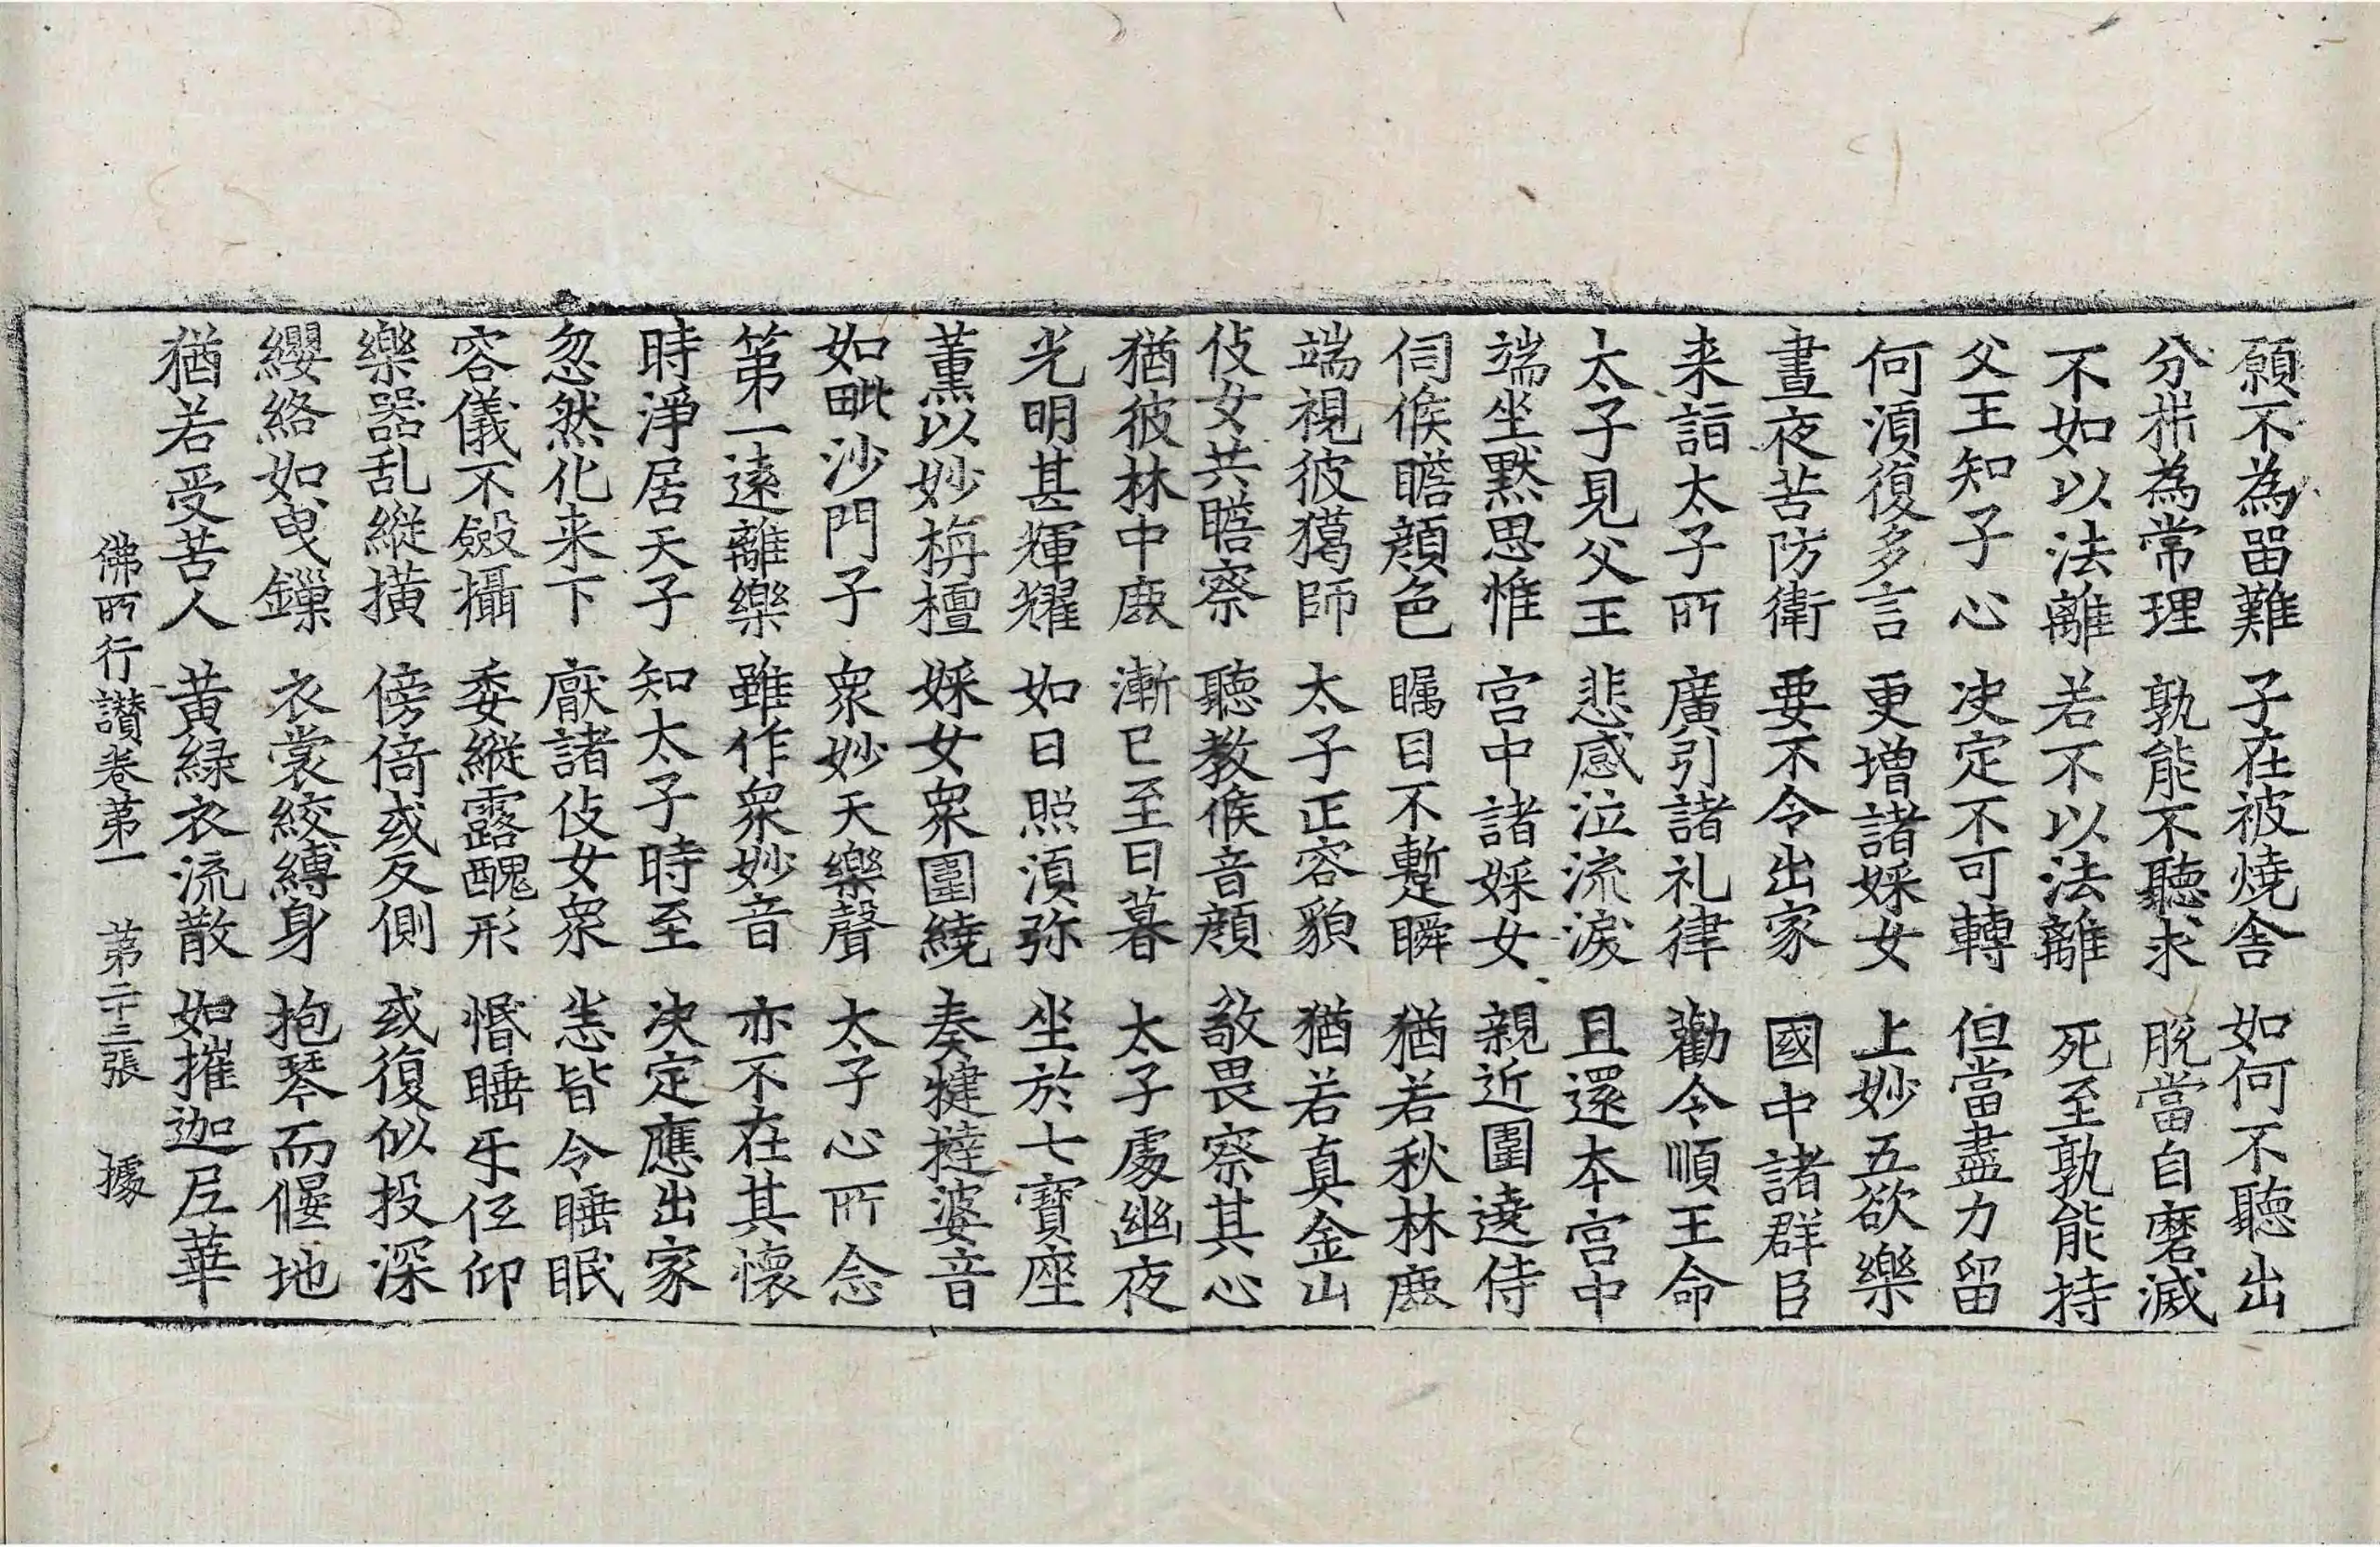 願不為留難　子在被燒舍　如何不聽出
分㭊為常理　孰能不聽求　脫當自磨滅
不如以法離　若不以法離　死至孰能持
父王知子心　决定不可轉　但當盡力留
何湏復多言　更增諸婇女　上妙五欲樂
晝夜苦防衛　要不令出家　國中諸群臣
来詣太子所　廣引諸礼律　勸令順王命
太子見父王　悲感泣流淚　且還本宮中
端坐默思惟　宮中諸婇女　親近圍遶侍
伺候瞻顏色　矚目不暫瞬　猶若秋林鹿
端視彼獦師　太子正容貌　猶若真金山
伎女共瞻察　聽教候音顏　敬畏察其心
猶彼林中鹿　漸已至日暮　太子處幽夜
光明甚輝耀　如日照湏弥　坐於七寶座
薰以妙栴檀　婇女衆圍繞　奏犍撻婆音
如毗沙門子　衆妙天樂聲　太子心所念
第一遠離樂　雖作衆妙音　亦不在其懷
時淨居天子　知太子時至　决定應出家
忽然化来下　厭諸伎女衆　悉皆令睡眠
容儀不斂攝　委縱露醜形　惛睡乐伾仰
樂器乱縱橫　傍倚或反側　或復似投深
纓絡如曳鏁　衣裳絞縛身　抱琴而偃地
猶若受苦人　黃綠衣流散　如摧迦尼華
佛所行讚卷第一　第二十三張　據